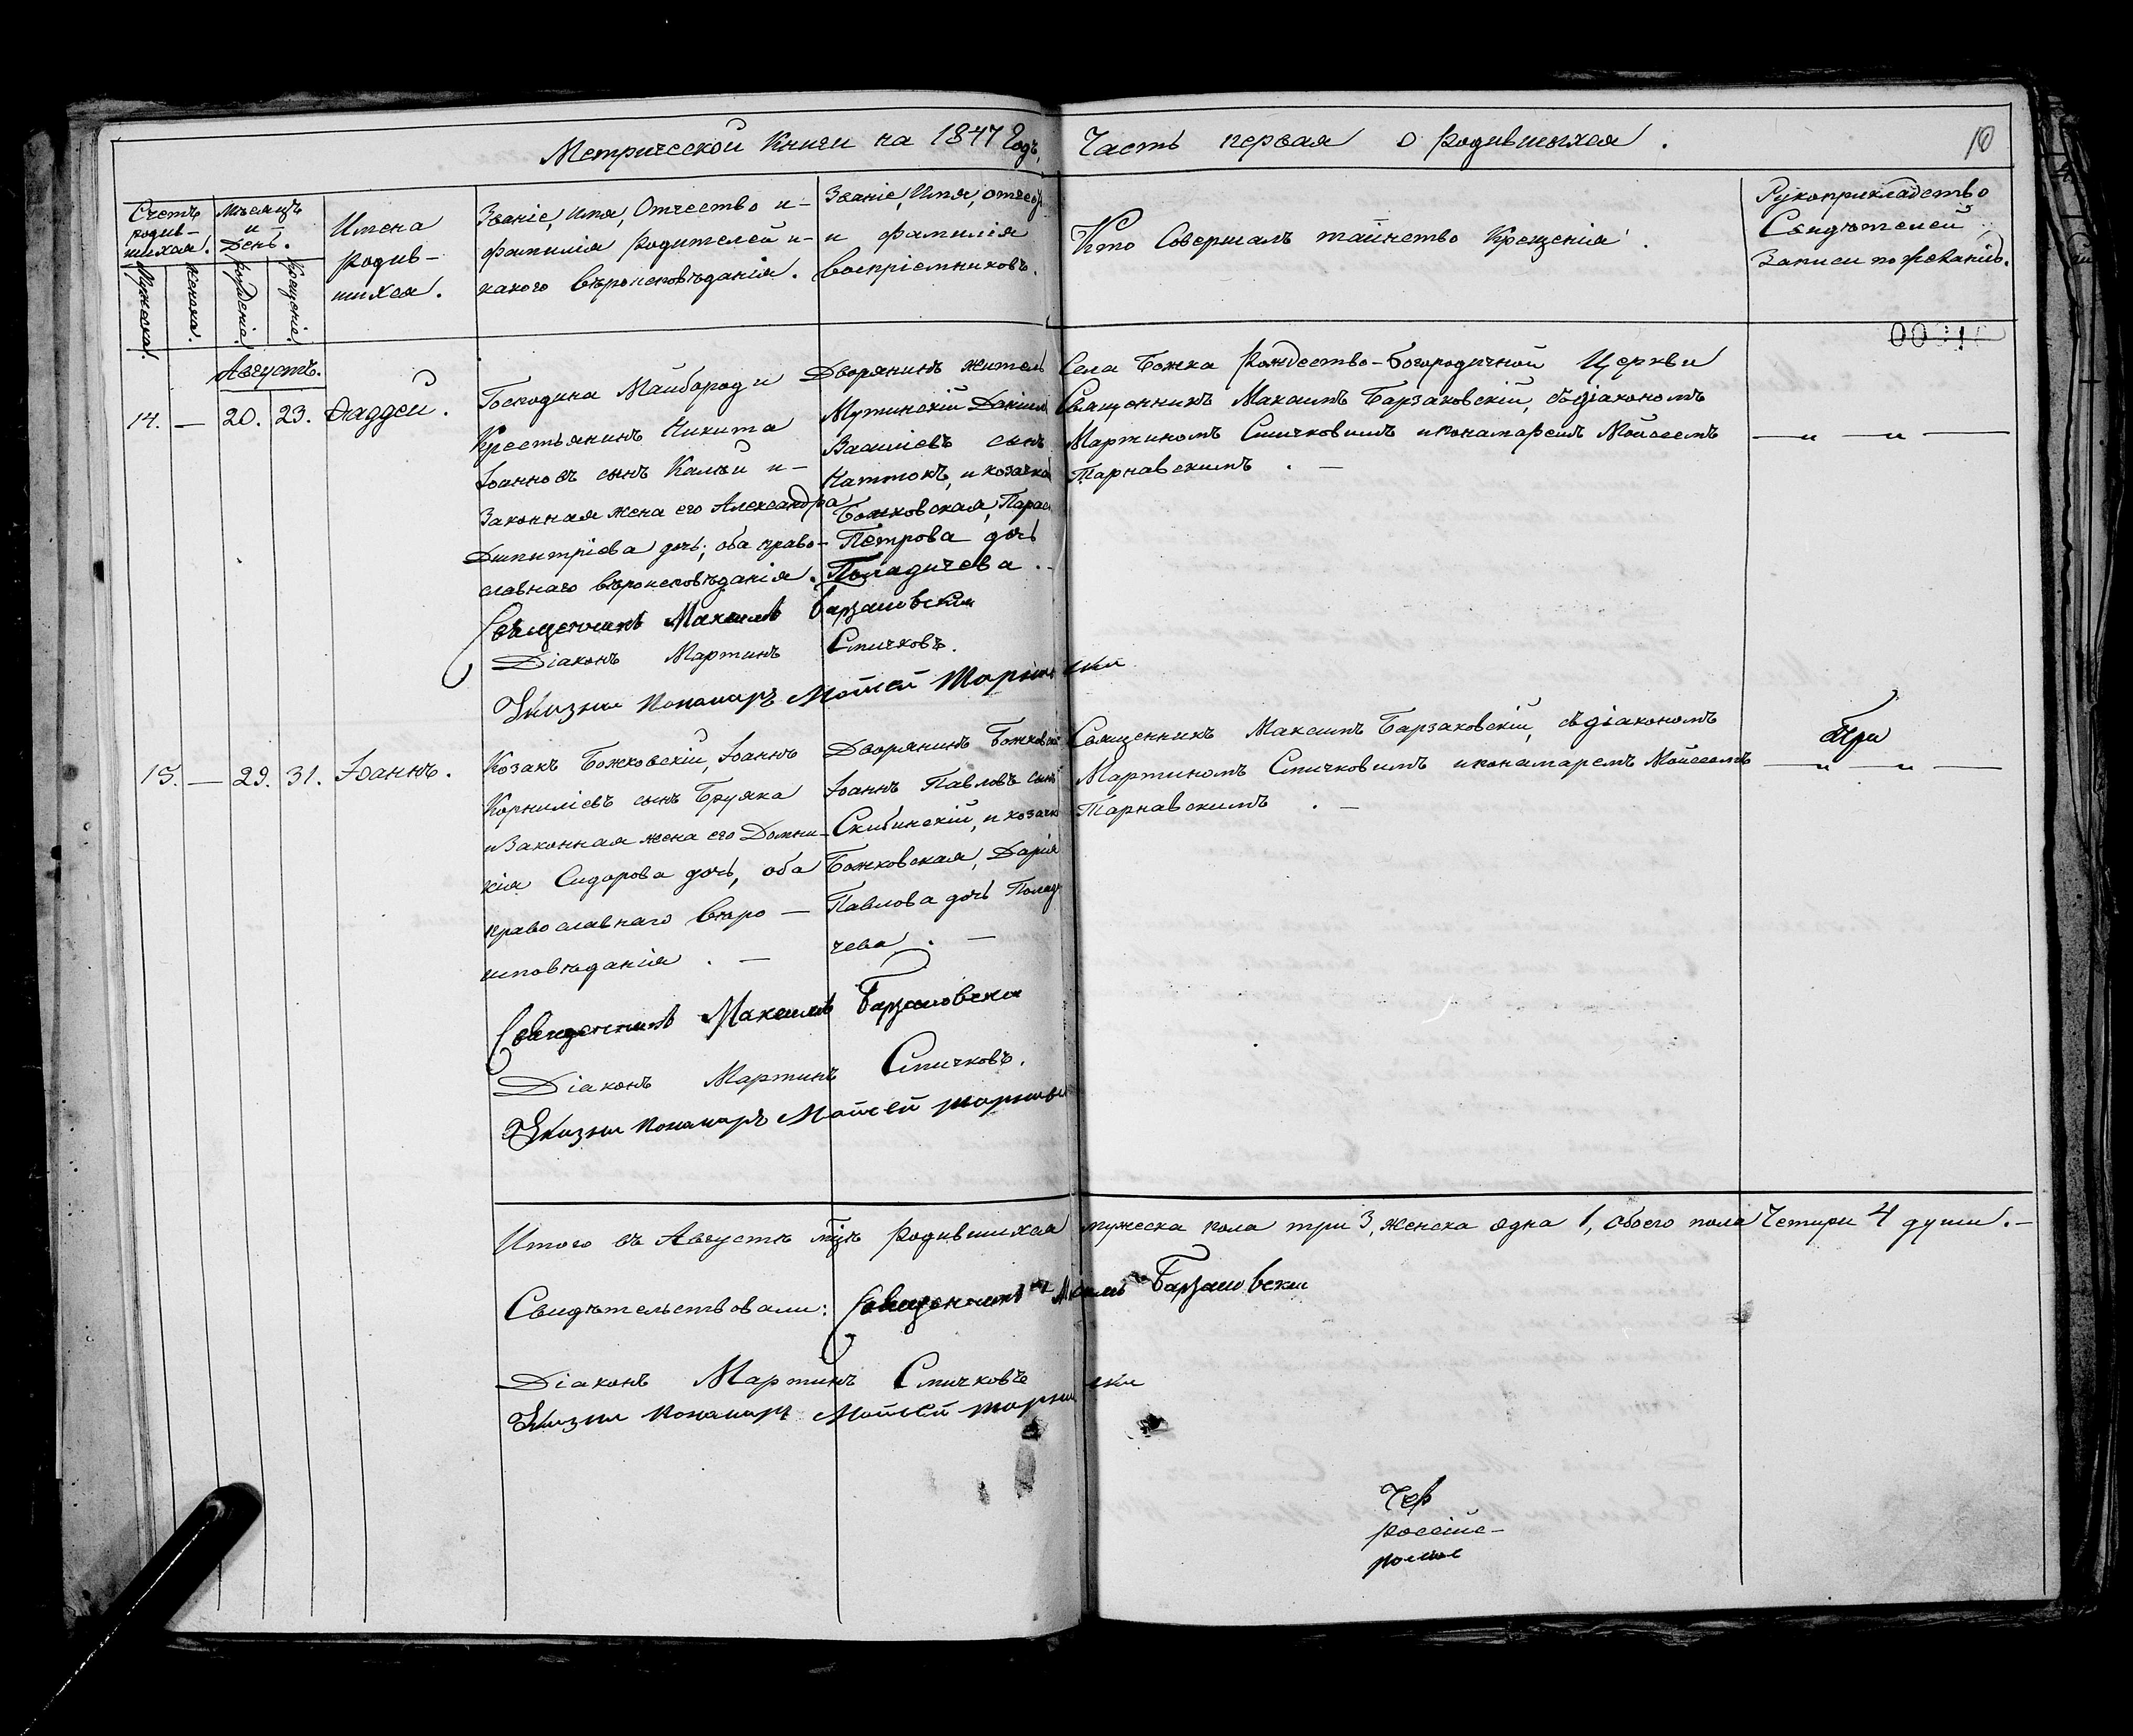 Метрической Книги на 1847 Годъ,
Часть первая о Родившихся.
10
Счетъ родив-
шихся.
Мужеска.
Женска.
Мѣсяцъ
и
День.
Рожденія.
Крещенія.
Имена
Родив-
шихся.
Званіе, Имя, Отчество и-
Фамилія Родителей и-
какого Вѣроисповѣданія.
Званіе, Имя, Отчес
и Фамилія
Воспріемниковъ.
Кто Совершалъ таинство Крещенія.
Рукоприкладство
Свидѣтелей
Записи по желанію.
Августъ.
14. — 20. 23. Фаддей.
Господина Майбороди
Крестьянинъ Никита
Іоанновъ сынъ и-
Законная жена его Александра
Димитріева дочь; оба право-
славнаго Вѣроисповѣданія.
Дворянинъ житель
Мутинскій Даніилъ
Василіевъ сынъ
и козачка
Божковская, Парас
Петрова дочь
Поладичева.-
Села Божка Рождество-Богородичной Церкви
Священникъ Максимъ Барзаковскій, съ діакономъ
Мартиномъ Смичковимъ и понамаремъ Мойсеемъ
Тарнавскимъ. —
Священникъ Максимъ Барзаковски
Діаконъ Мартинъ Смичковъ.
Понамаръ Мойсей Тарнавски
15. — 29. 31. Іоаннъ.
Козакъ Божковскій, Іоаннъ
Корниліевъ сынъ Бруяка
и Законная жена его Домни-
кія Сидорова дочь, оба
православнаго Веро —
исповѣданія. —
Дворянинъ Божковскій
Іоаннъ Павловъ сынъ
Скибинскій, и козачка
Божковская, Дарія
Павлова дочь Полади
чева. —
Священникъ Максимъ Барзаковскій, съ діакономъ
Мартиномъ Смичковимъ и понамаремъ Мойсеемъ
Тарнавскимъ. —
При
Священникъ Максимъ Барзаковски
Діаконъ Мартинъ Смичковъ.
Понамаръ Мойсей Тарнавски
Итого въ Августѣ мцѣ Родившихся мужеска пола три 3, женска одна 1, Обоего пола Четири 4 души.-
Свидѣтельствовали: Священникъ Максимъ Барзаковски
Діаконъ Мартинъ Смичковъ
Понамаръ Мойсей Тарнавски
Чер